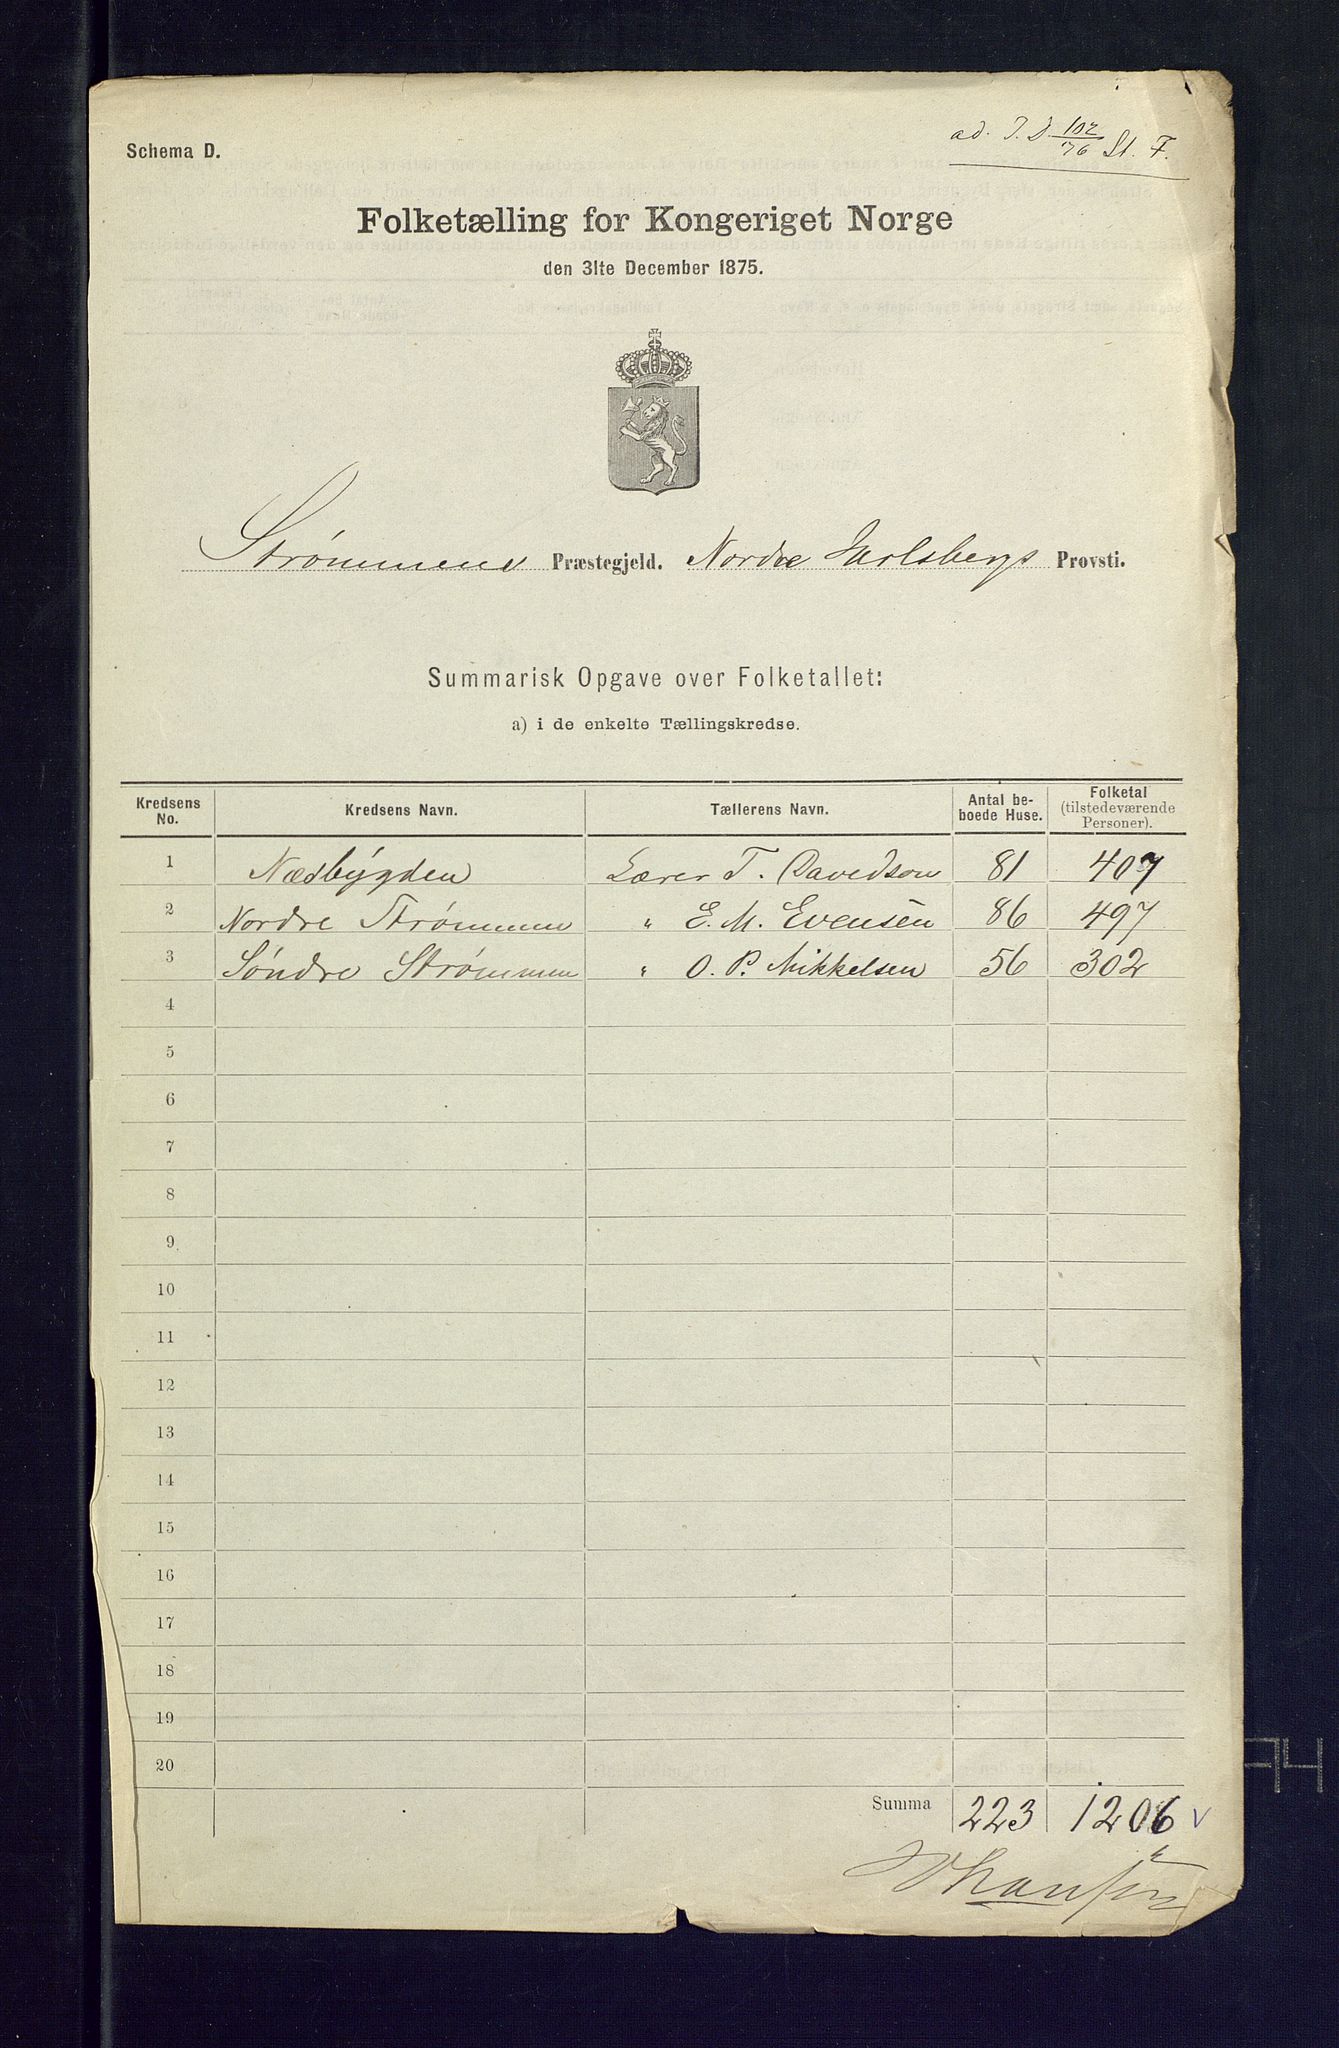 ad. J. D. 102/76 St. F.
Schema D.
Folketælling for Kongeriget Norge
den 31te December 1875.
Strømmens Præstegjeld. Nordre Jarlsbergs Provsti.
Summarisk Opgave over Folketallet:
a) i de enkelte Tællingskredse.
Kredsens No. Kredsens Navn. Tællerens Navn. Antal beboede Huse. Folketal (tilstedeværende Personer).
1 Næsbygden Lærer T. Davidson 81 407
2 Nordre Strømmen " E. M. Evensen 86 497
3 Søndre Strømmen " O. P. Mikkelsen 56 302
4
5
6
7
8
9
10
11
12
13
14
15
16
17
18
19
20
Summa 223 1206 v
74